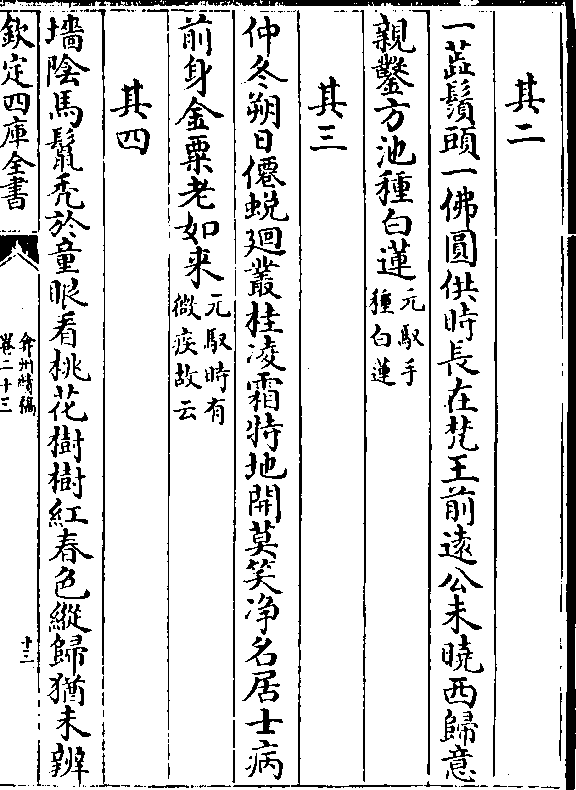 其二
一蕋鬚頭一佛圓供時長在梵王前遠公未曉西歸意
親鑿方池種白蓮元馭手
種白蓮
其三
仲冬朔日僊蛻廻叢桂凌霜特地開莫笑净名居士病
前身金粟老如来元馭時有
微疾故云
其四
墻陰馬鬛秃於童眼看桃花樹樹紅春色縱歸猶未辨
欽定四庫全書
弇州續稿
卷二十三
十三